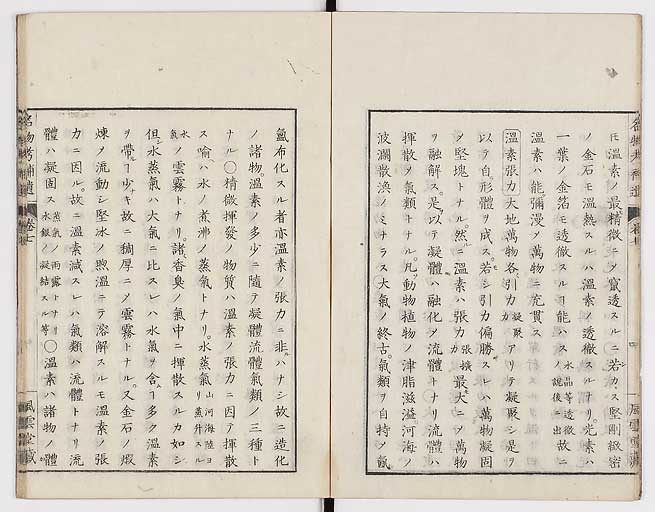 モ溫素ノ最精微ニ〆竄透スルニ若カス堅剛緻密
ノ金石モ溫熱スルハ溫素ノ透徹スルナリ光素ハ
一葉ノ金箔モ透徹スルヿ能ハス水晶等透徹ノ說後ニ出故ニ
溫素ハ能彌漫〆萬物ニ充貫ス
溫素張力大地萬物各引力凝聚力アリテ凝聚シ是ヲ
以テ自形體ヲ成ス若シ引力偏勝スレハ萬物凝固
〆堅塊トナル然ニ溫素ハ張力擴張力最大ニ〆萬物
ヲ融解ス是以テ凝體ハ融化〆流體トナリ流體ハ
揮散〆氣類トナル凡動物植物ノ津脂滋溢河海ノ
波瀾散渙ノミナラス大氣ノ終古氣類ヲ自持〆氤
氳布化スル者亦溫素ノ張力ニ非ハナシ故ニ造化
ノ諸物溫素ノ多少ニ隨テ凝體流體氣類ノ三種ト
ナル〇精微揮發ノ物質ハ溫素ノ張力ニ因テ揮散
ス喩ハ水ノ煮沸〆蒸氣トナリ山河海陸ヨリ蒸升スル水蒸氣
水氣ノ雲霧トナリ諸香臭ノ氣中ニ揮散スルカ如シ
但水蒸氣ハ大氣ニ比スレハ水氣ヲ含ヿ多ク溫素
ヲ帶ヿ少キ故ニ稠厚ニ〆雲霧トナル又金石ノ煆
煉〆流動シ堅氷ノ煦溫ニテ溶解スルモ溫素ノ張
力ニ因ル故ニ溫素減スレハ氣類ハ流體トナリ流
體ハ凝固ス蒸氣ノ雨露トナリ水銀ノ凝結スル等〇溫素ハ諸物ノ體
名物考補遺
卷七
風雲堂藏